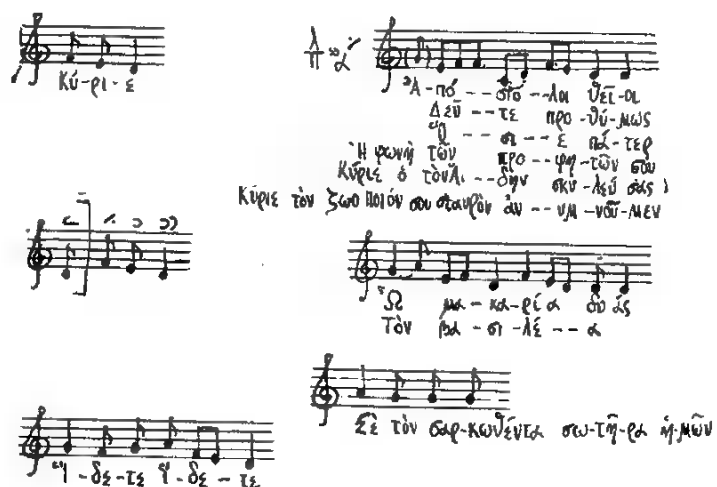 Κύ-ρι-ε
Ἀ-πό--στο--λοι θεῖ-οι
Δεῦ--τε προ-θύ-μως
σι--ε πά-τερ
Ἡ φωνὴ τῶν προ--φη-τῶν σου
Κύριε ὁ τὸν Ἅι--δην σκυ-λεύσας
Κύριε τὸν ζωοποιόν σου σταυρὸν ἀν--υμ-νοῦ-μεν
Ὦ μα-κα-ρία δυάς
Τὸν βα-σι-λέ--α
Σὲ τὸν σαρ-κωθέντα σω-τῆ-ρα ἡ-μῶν
Ἴ-δε-τε ἴ-δε--τε